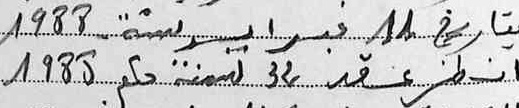 بتاريخ 11 فبراير سنة 1988
انظر عقد 32 لسنة 1985